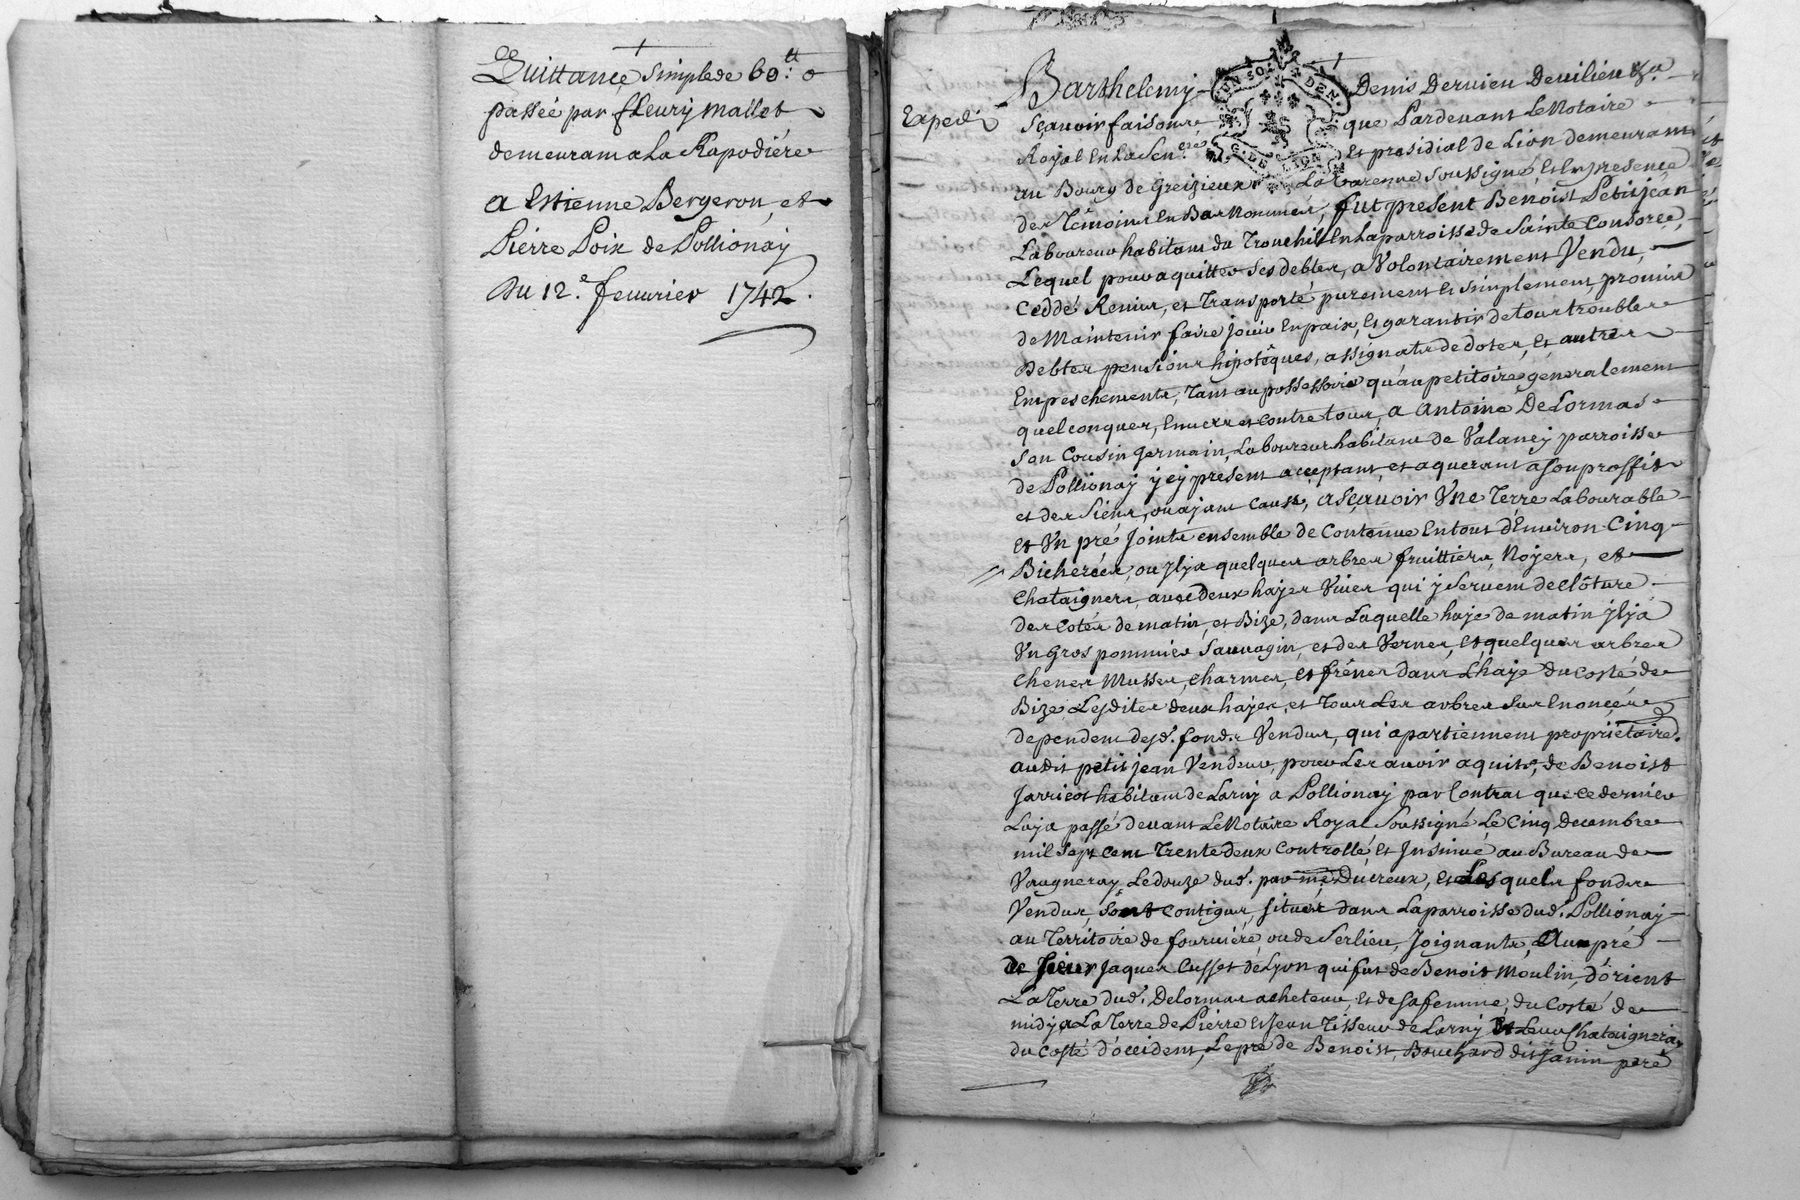 Quittance simple de 60.tt o
passée par fleury mallet
demeurant a La Rapodiére
a Estienne Bergeron, et
Pierre Poix de Pollionay
Du 12.e feuurier 1742.
Barthelemy Denis Deruieu Deuilieu &a
Exped.
Sçauoir faisons que Pardeuant Le Notaire
Royal En La Sen.ée Et presidial de Lion demeurant
au Bourg de Greizieux La Varenne soussigné, Et En presence
des Témoins En Bas Nommés, fut present Benoist Petitjean
Laboureur habitant du Trouchil En La parroisse de Sainte Consorce,
Lequel pour aquitter ses debtes, a Volontairement Vendu,
Ceddé Remis, et Transporté purement et simplement, promis
de Maintenir faire joüir En paix, Et garantir de tous troubles
Debtes pensions hipotêques, assignats de dotes, Et autres
Empeschements, Tant au possessoire qu'au petitoire generalement
quelconques, Enuers et contre tous, a Antoine DeLormas
son Cousin germain, Laboureur habitant de Valancy parroisse
de Pollionay jcy present acceptant, et aquerant a son proffit
et des siens, ou ajant cause, asçauoir Vne Terre Labourable
Et Vn pré Joints ensemble de Contenue En tout d'Enuiron Cinq
Bicherées, ou jlja quelques arbres fruittiers, Noyers, et
Chataigners, auec deux hajes Viues qui j seruent de clôture
des cotés de matin, et Bize, dans Laquelle haje de matin jlja
Vn Gros pommier Sauuagin, et des Vernes, Et quelques arbres
chenes Musses, charmes, et frênes dans L'haje du costé de
Bize, Lesdites deux hajes, et Tous Les arbres sus Enoncées
dependent desd. fonds Vendus, qui apartiennent propriétaire.
audit petit jean Vendeur, pour Les auoir aquits, de Benoist
Jarricot habitant de Larny a Pollionay par Contrat que ce dernier
Luja passé deuant Le Notaire Royal Soussigné Le Cinq Decembre
mil sept cent Trente deux controllé, Et Jnsinué au Bureau de
Vaugneray, Le douze dud. par me. Ducreux, Et Lesquels fonds
Vendus, sont contigus, situés dans La parroisse dud. Pollionay
au Territoire de fourniére, ou de Serlieu, Joignants, Au pré
de sieur Jaques Cusset de Lyon qui fut de Benoit Moulin, d'órient
La Terre dud. Delormas acheteur Et de sa femme, du Costé de
midy, a La Terre de Pierre Et Jean Tisseur de Larny Et Leur Chataigneraj
du costé d'occident, Le pré de Benoist Bouchard dit Janin pere